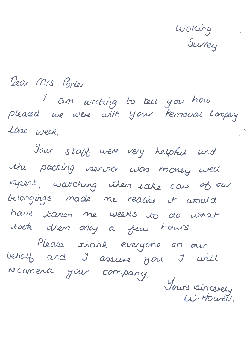 Woking
Surrey
Dear Mrs Porter
I am writing to tell you how
pleased we were with your removal company
last week.
Your staff were very helpful and
the packing service was money well
spent, watching them take care of our
belongings made me realise it would
have taken me weeks to do what
took them only a few hours
Please thank everyone on our
behalf and I assure you I will
recomend your company
Yours sincerely
W. Howell